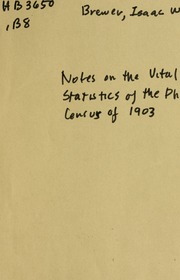 HB3650
.B8
Brewer, Isaac W
Notes on the Vital
Statistics of the Ph
Census of 1903